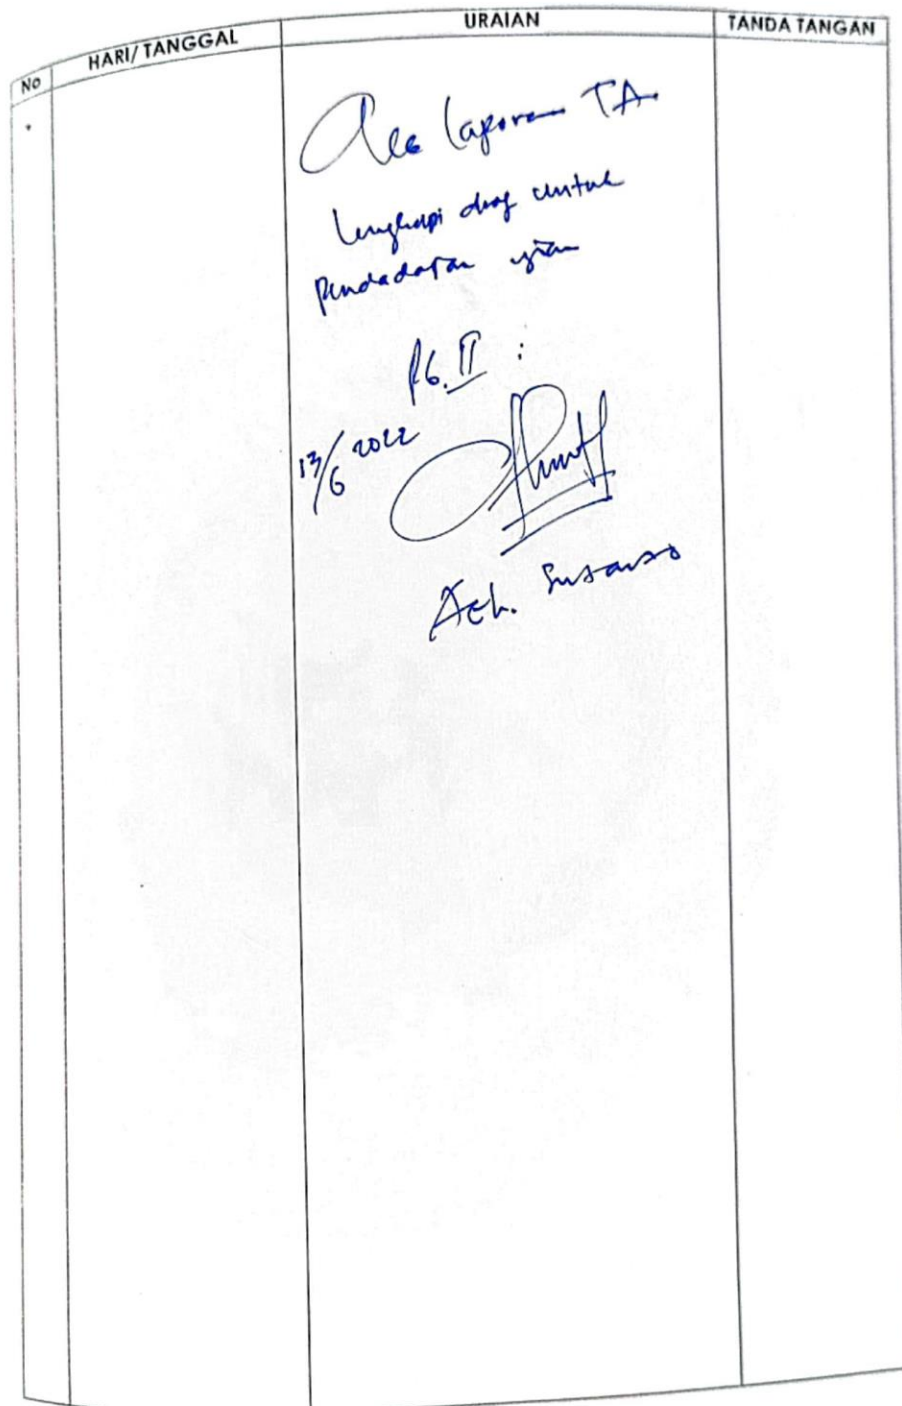 No HARI/ TANGGAL URAIAN TANDA TANGAN
Acc Laporan TA.
Lengkapi draf untuk
Pendadaran ujian
Pb. II :
13/6 2022
Ach. Susanso